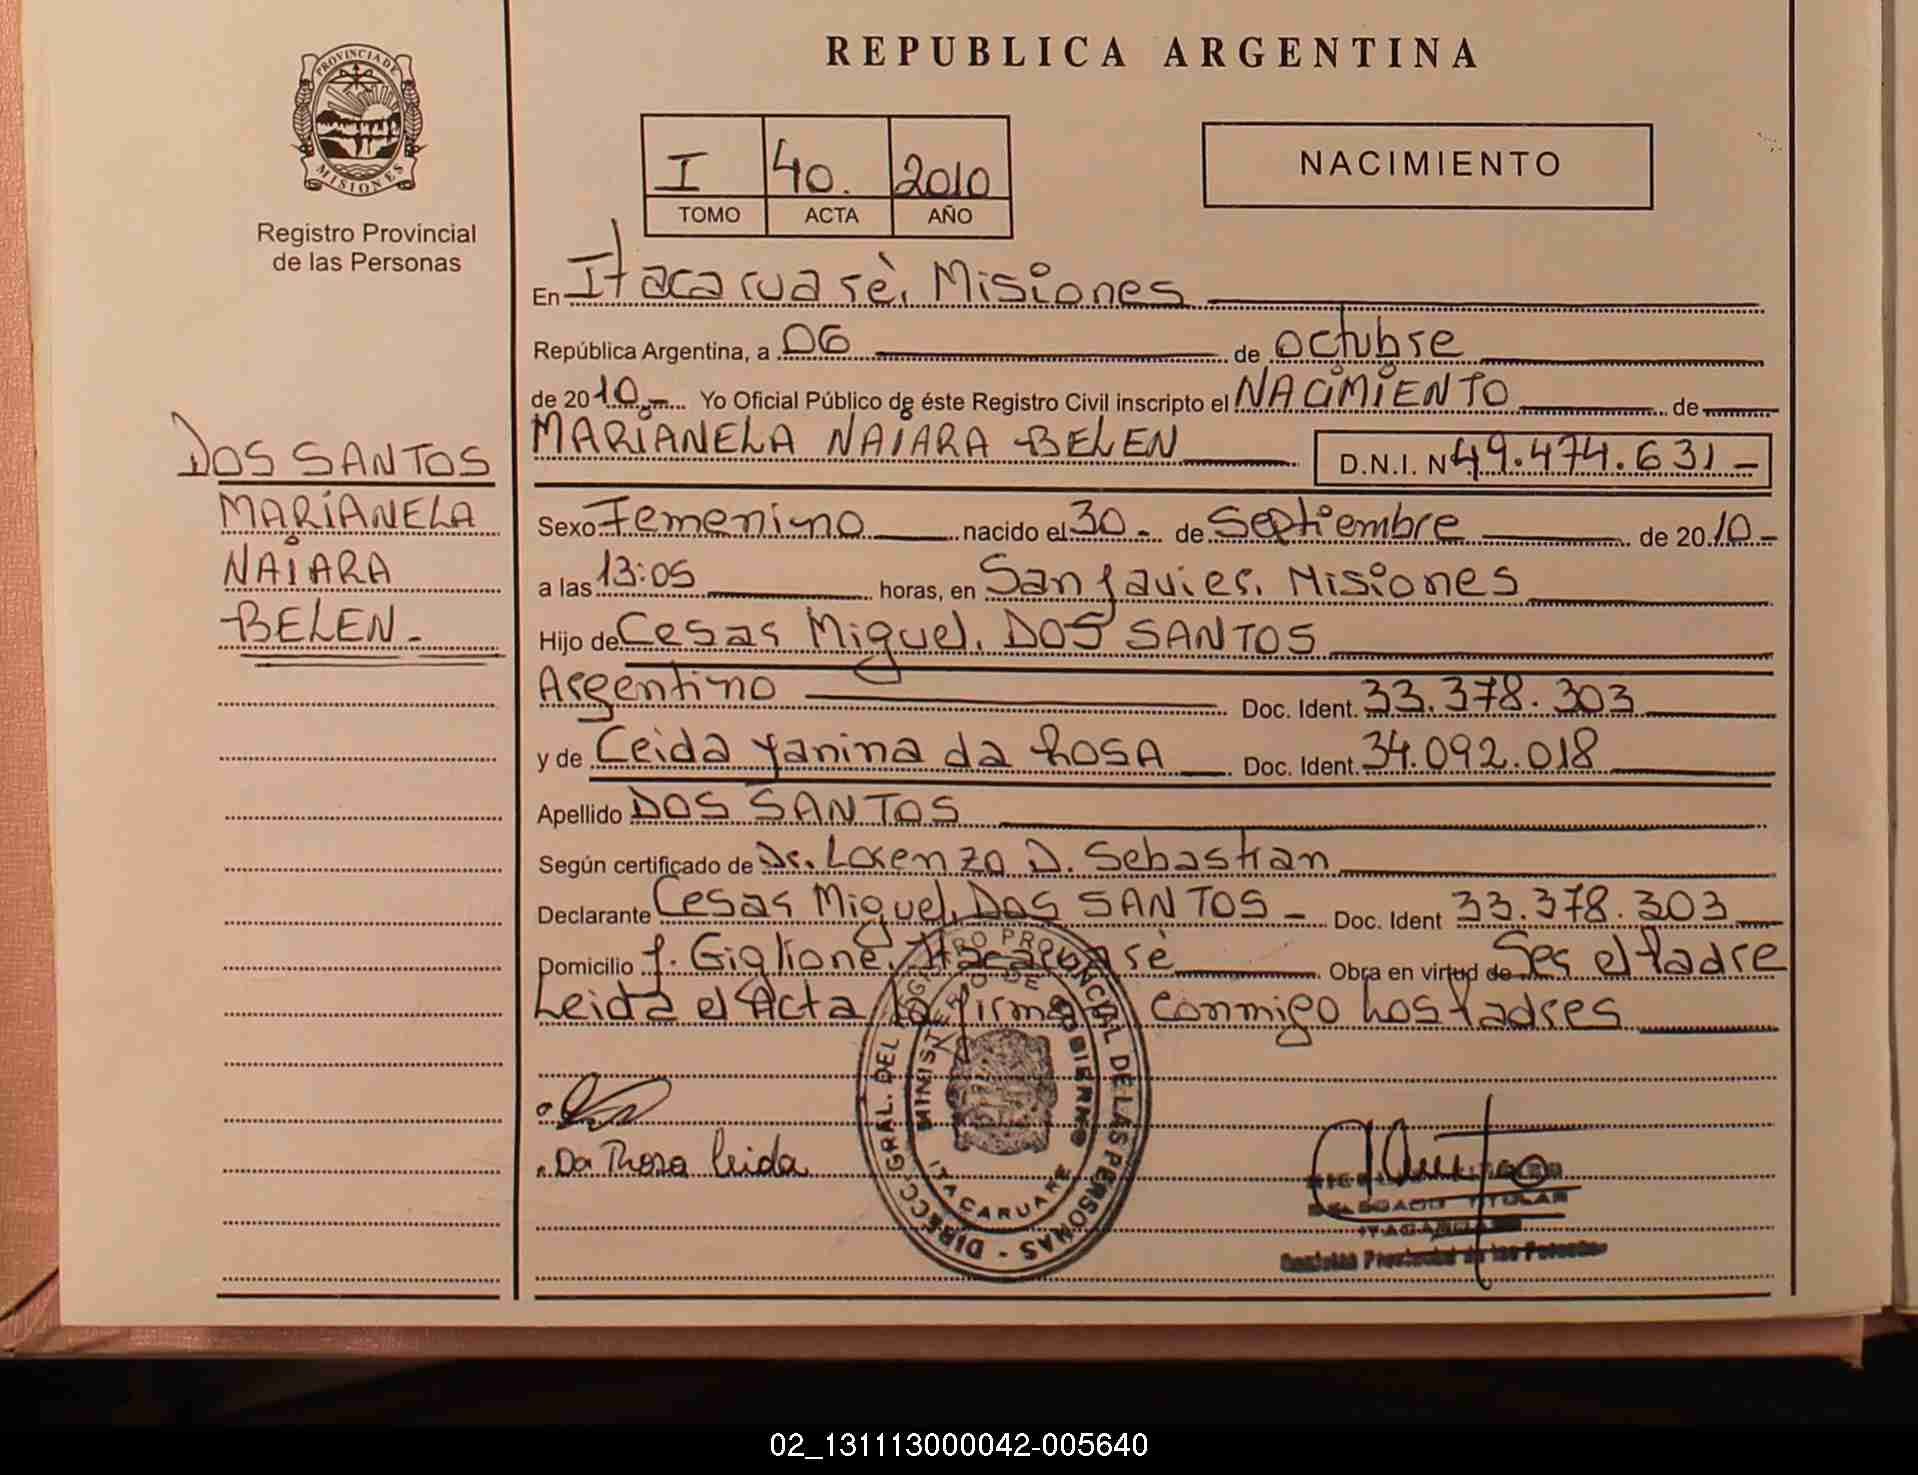 REPUBLICA ARGENTINA
PROVINCIA DE MISIONES
Registro Provincial
de las Personas
I 40. 2010
TOMO ACTA AÑO
NACIMIENTO
DOS SANTOS
MARIANELA
NAIARA
BELEN-
En Itacaruaré, Misiones
República Argentina, a 06 de octubre
de 2010.- Yo Oficial Público de éste Registro Civil inscripto el NACIMIENTO de
MARIANELA NAIARA BELEN D.N.I. Nº 49.474.631-
Sexo Femenino nacido el 30- de Septiembre de 2010-
a las 13:05 horas, en San Javier, Misiones
Hijo de Cesar Miguel, DOS SANTOS
Argentino Doc. Ident. 33.378.303
y de Leida Yanina da ROSA Doc. Ident. 34.092.018
Apellido DOS SANTOS
Según certificado de Dr. Lorenzo D. Sebastian
Declarante Cesar Miguel, DOS SANTOS - Doc. Ident 33.378.303
Domicilio J. Giglione, Itacaruaré Obra en virtud de Ser el Padre
Leida el Acta la firman conmigo Los Padres
DIRECC. GRAL. DEL REGISTRO PROVINCIAL DE LAS PERSONAS
MINISTERIO DE GOBIERNO
ITACARUARE
Da Rosa Leida
DELEGADO TITULAR
ITACARUARE
02_131113000042-005640